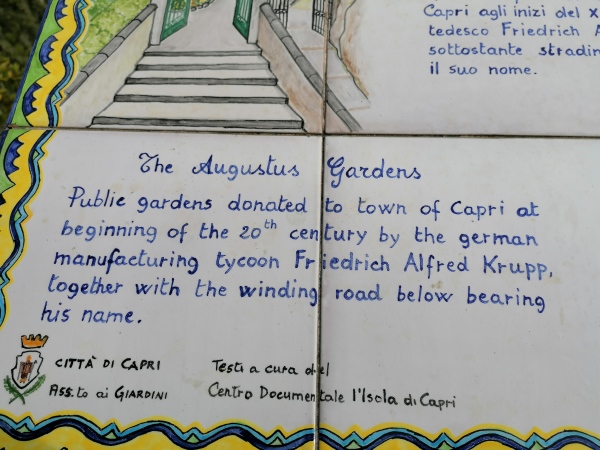 Capri agli inizi del
tedesco Friedrich
sottostante
il suo nome.
The Augustus Gardens
Public gardens donated to town of Capri at
beginning of the 20th century by the german
manufacturing tycoon Friedrich Alfred Krupp,
together with the winding road below bearing
his name.
CITTÀ DI CAPRI
Ass.to ai GIARDINI
Testi a cura del
Centro Documentale l'Isola di Capri